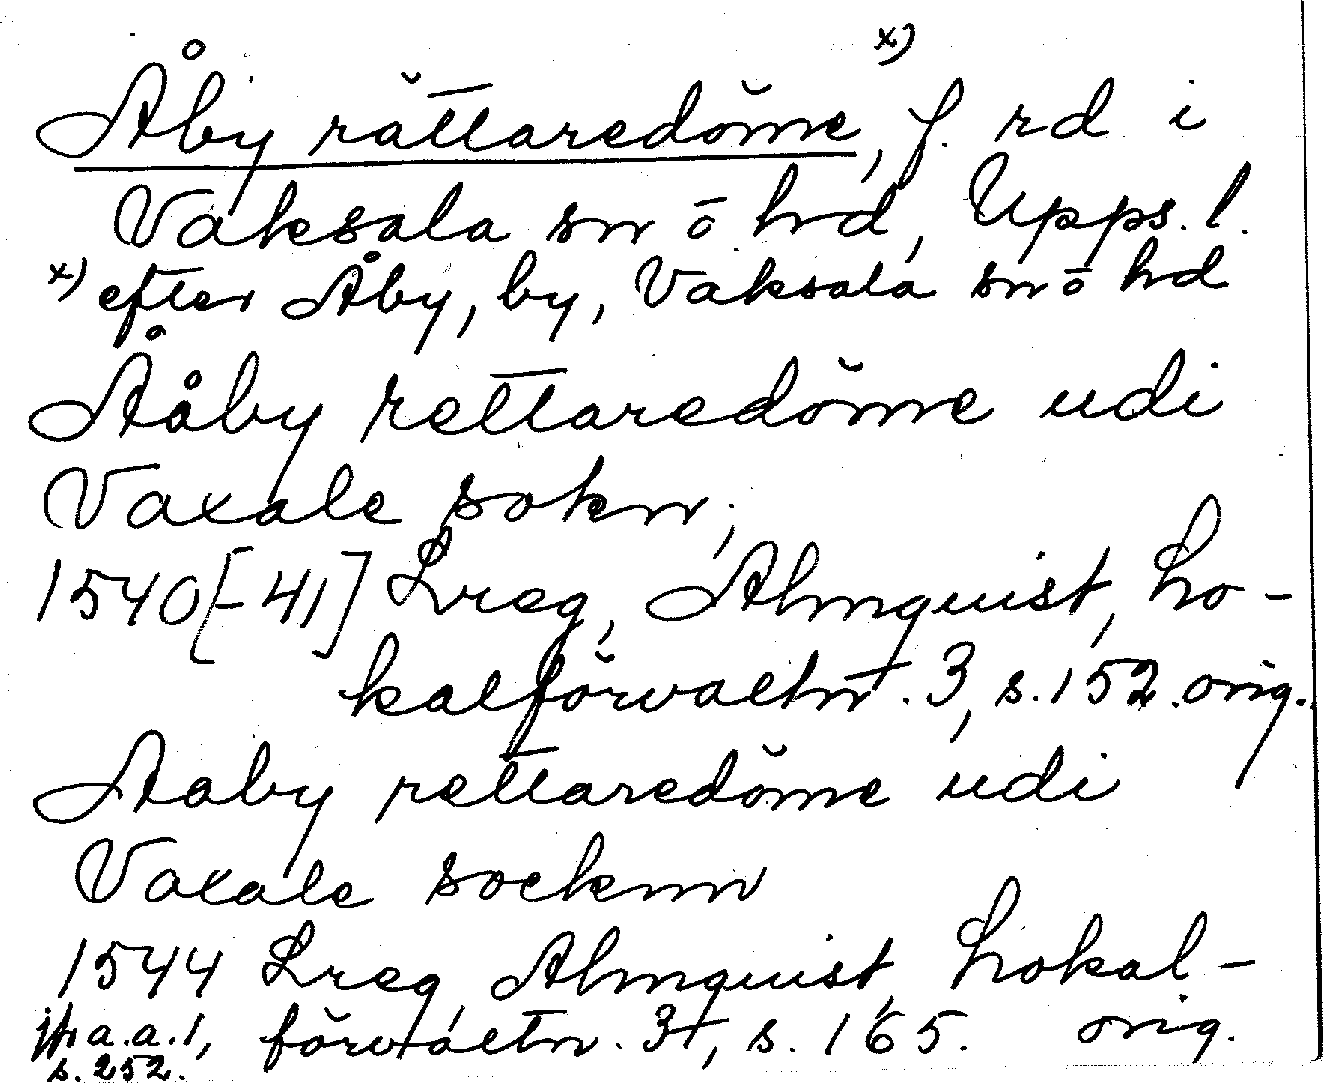 Åby rättaredöme, x) f. rd i
Vaksala sn ö hd, Upps. l.
x) efter Åby, by, Vaksala sn ö hd
Ååby rettaredöme udi
Vaxale sokn,
1540[-41] Lreg, Almquist, Lo-
kalförvaltn. 3, s. 152. orig.
Aaby rettaredöme udi
Vaxale socknn
1544 Lreg, Almquist, Lokal-
jfr a.a. 1, förvaltn. 3, s. 165. orig.
s. 252.